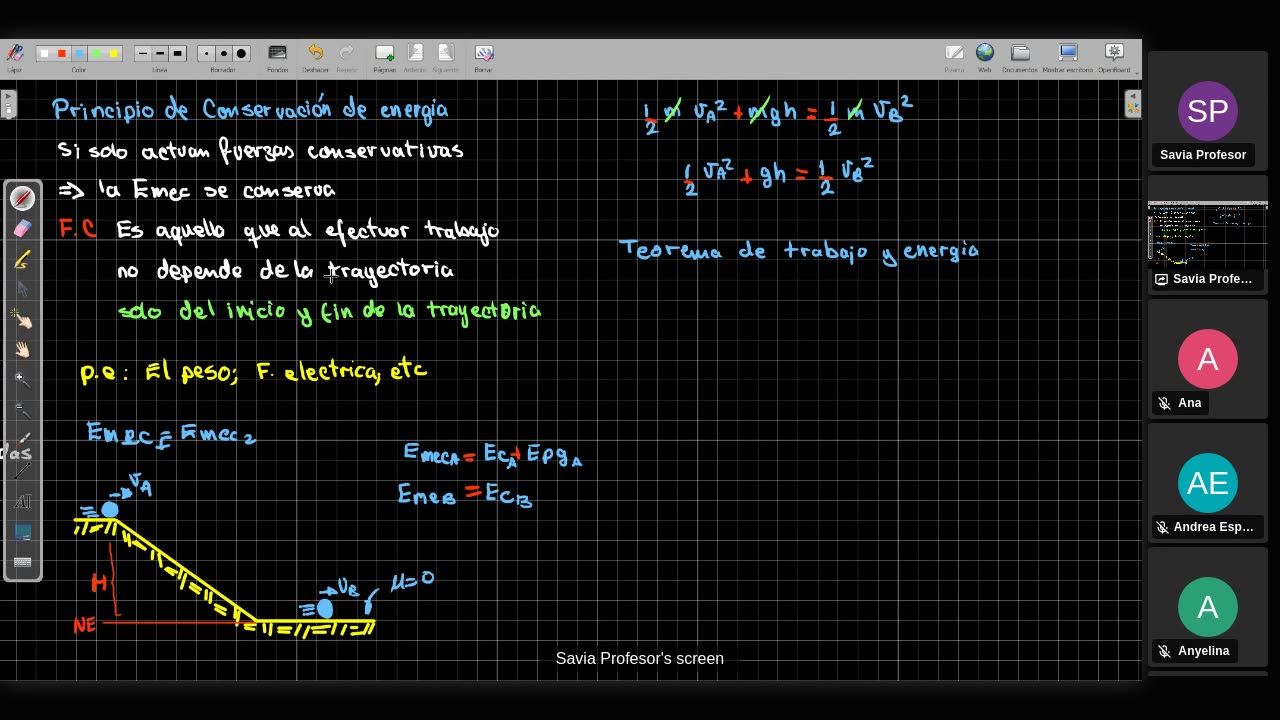 Lápiz Color Línea Borrador Fondos Deshacer Repetir Páginas Anterior Siguiente Borrar Pizarra Web Documentos Mostrar escritorio OpenBoard
Principio de Conservación de energia
Si solo actuan fuerzas conservativas
=> la Emec se conserva
F.C Es aquello que al efectuar trabajo
no depende de la trayectoria
solo del inicio y fin de la trayectoria
p.e: El peso; F. electrica, etc
Emec = Emec2
das
EmecA = EcA + EpgA
EmeB = EcB
vA
H
NE
vB
μ=0
1/2 m vA² + mgh = 1/2 m vB²
1/2 vA² + gh = 1/2 vB²
Teorema de trabajo y energia
Savia Profesor's screen
SP
Savia Profesor
Savia Profe...
A
Ana
AE
Andrea Esp...
A
Anyelina